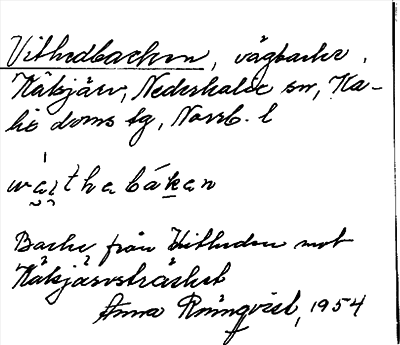 Vithedbacken, vägbacke,
Näsjärv, Nederkalix sn, Ka-
lix doms tg, Norrb. l
wa̤íthabákan
Backe från Vitheden mot
Näsjärvsträsket
Anna Rönnqvist, 1954